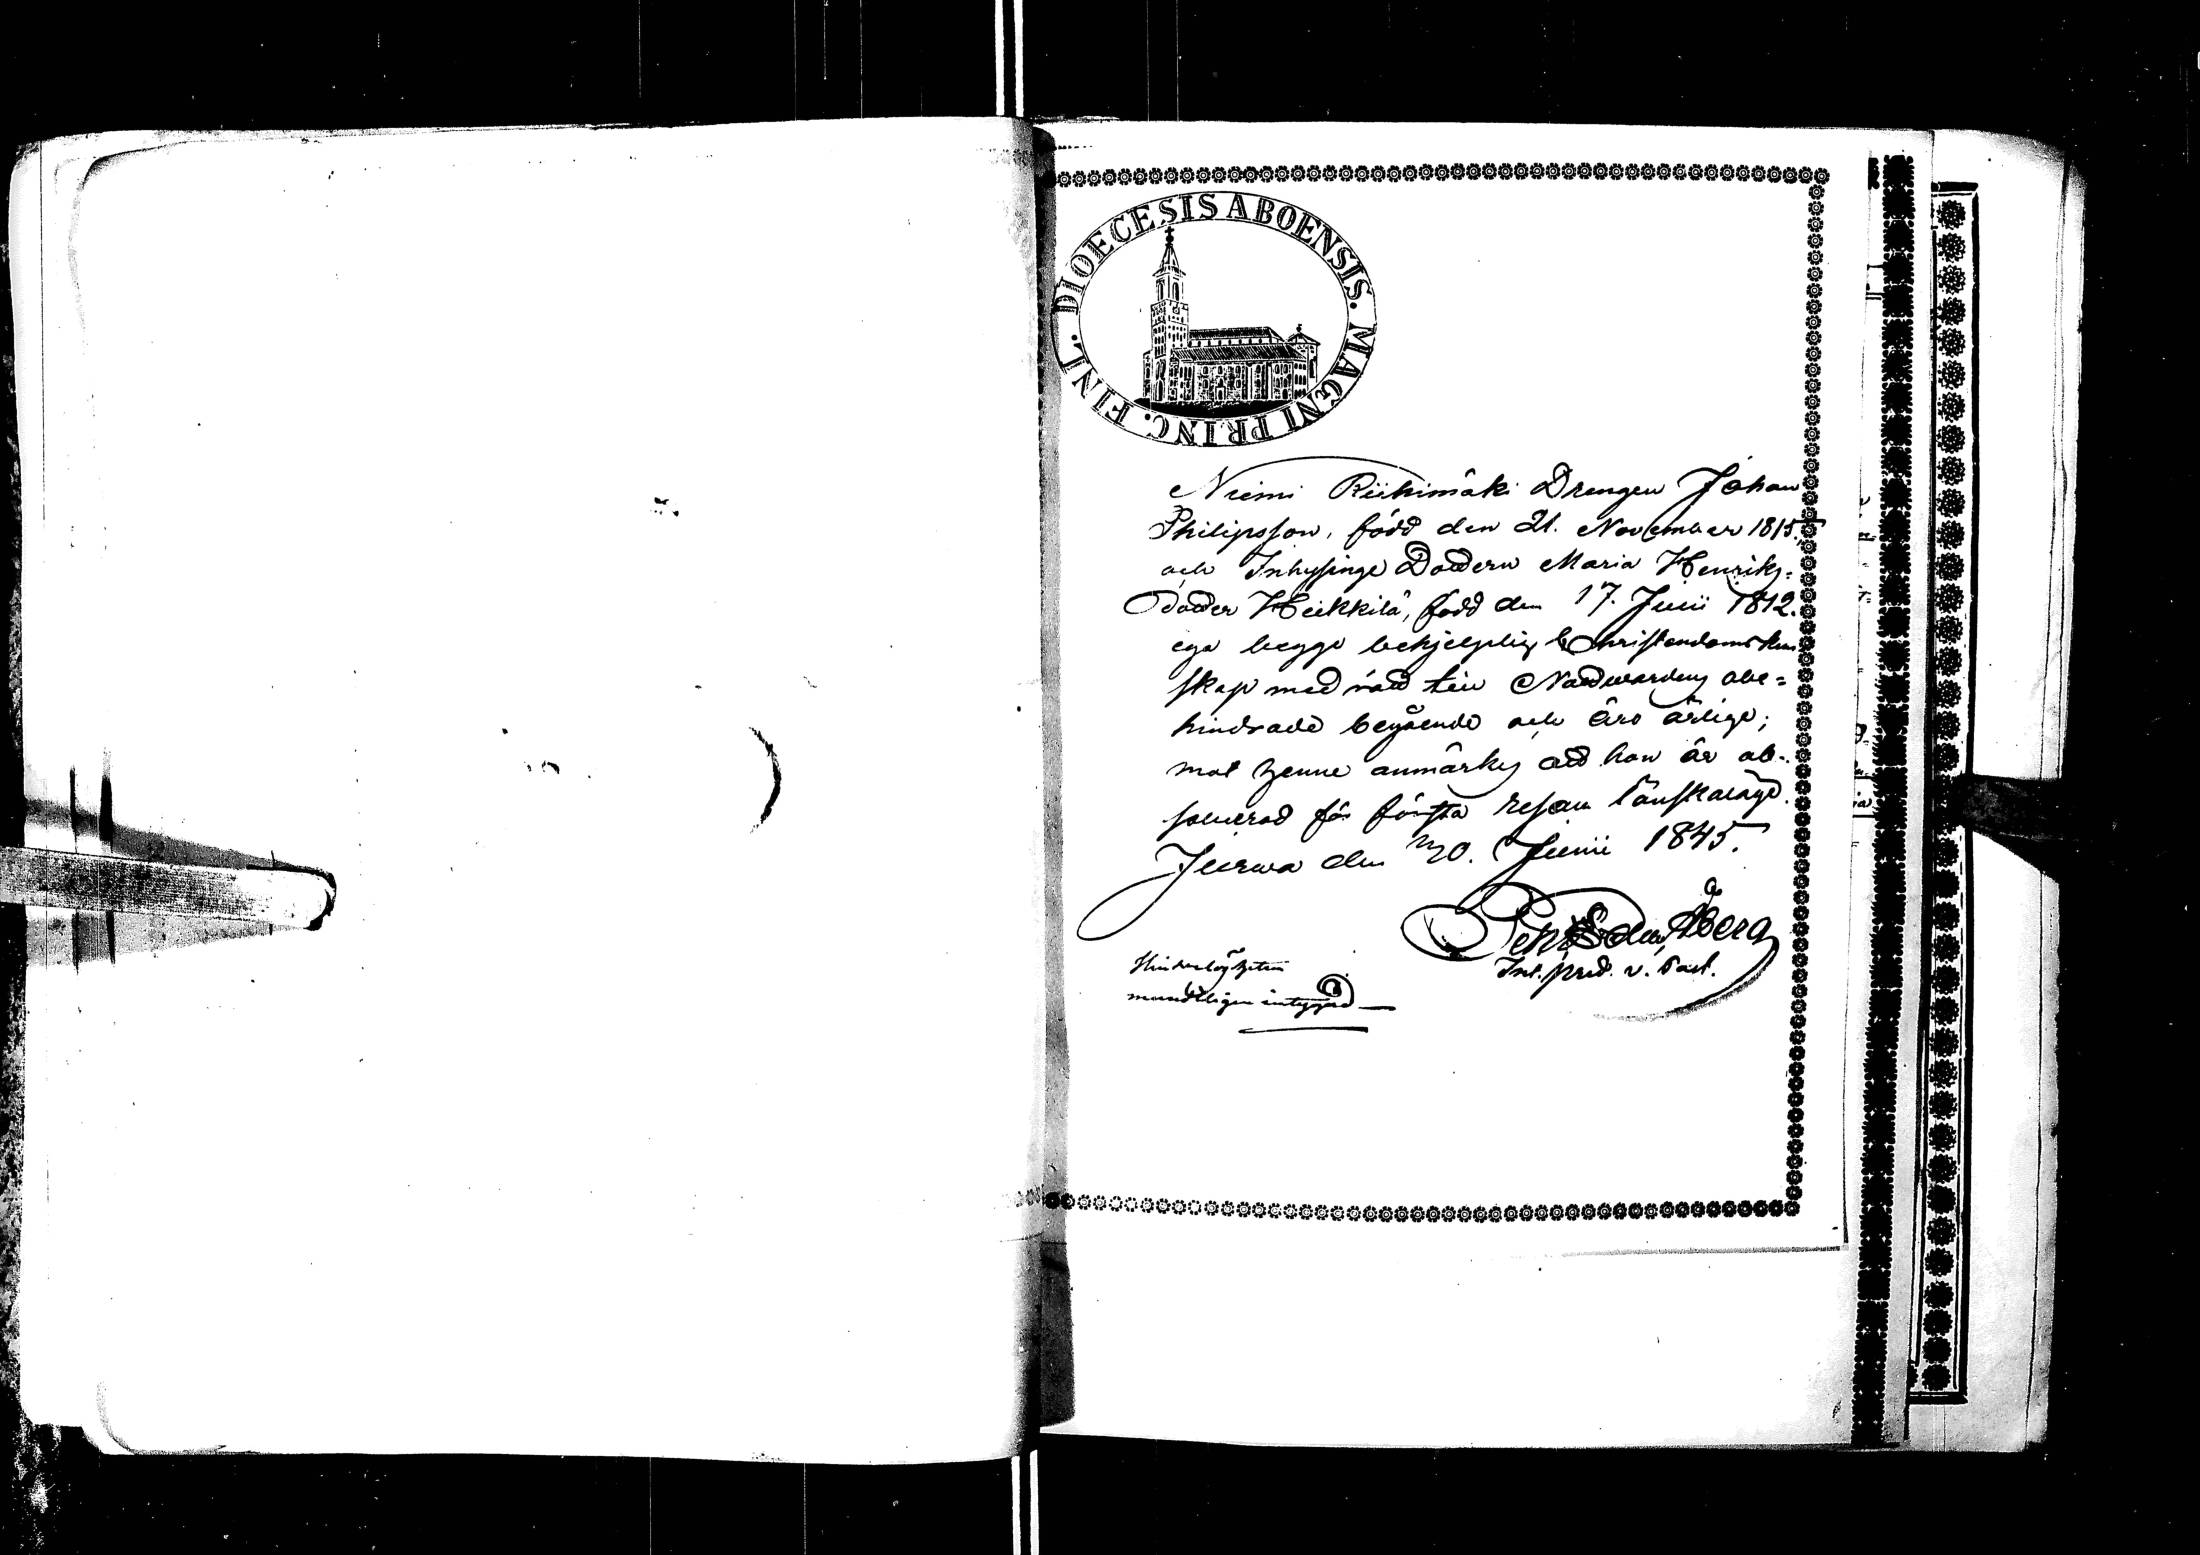 DIOECESIS ABOENSIS. MAGNI PRINC. FINL.
Niemi Riihimäki Drengen Johan
Philipsson, född den 21. November 1815.
och Inhysinge Dottern Maria Henriks=
Dotter Heikkilä, född den 17. Junii 1812.
ega begge behjelplig Christendoms kun
skap med rätt till Nattwarden obe=
hindrade begående och äro ärlige;
mot henne anmärkes att hon är ab-
solverad för första resan lönskaläge.
Jurva den 30. Junii 1845.
Åberg
Int. pred. v. Past.
Hinderlösheten
mundtligen intygad